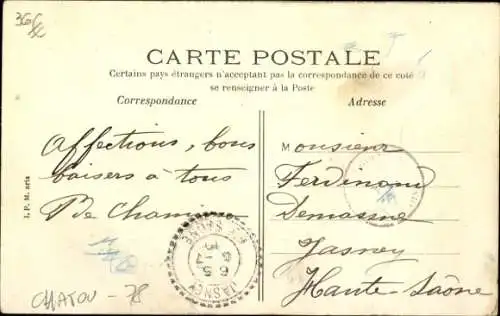 CARTE POSTALE
Certains pays étrangers n'acceptent pas la correspondance de ce coté
se renseigner à la Poste
Correspondance
Adresse
Affections, bons
baisers à tous
I. P. M. arts
Monsieur
Ferdinand
Demassue
Jasney
Haute-Saône
JASNEY
CHATOU - 78